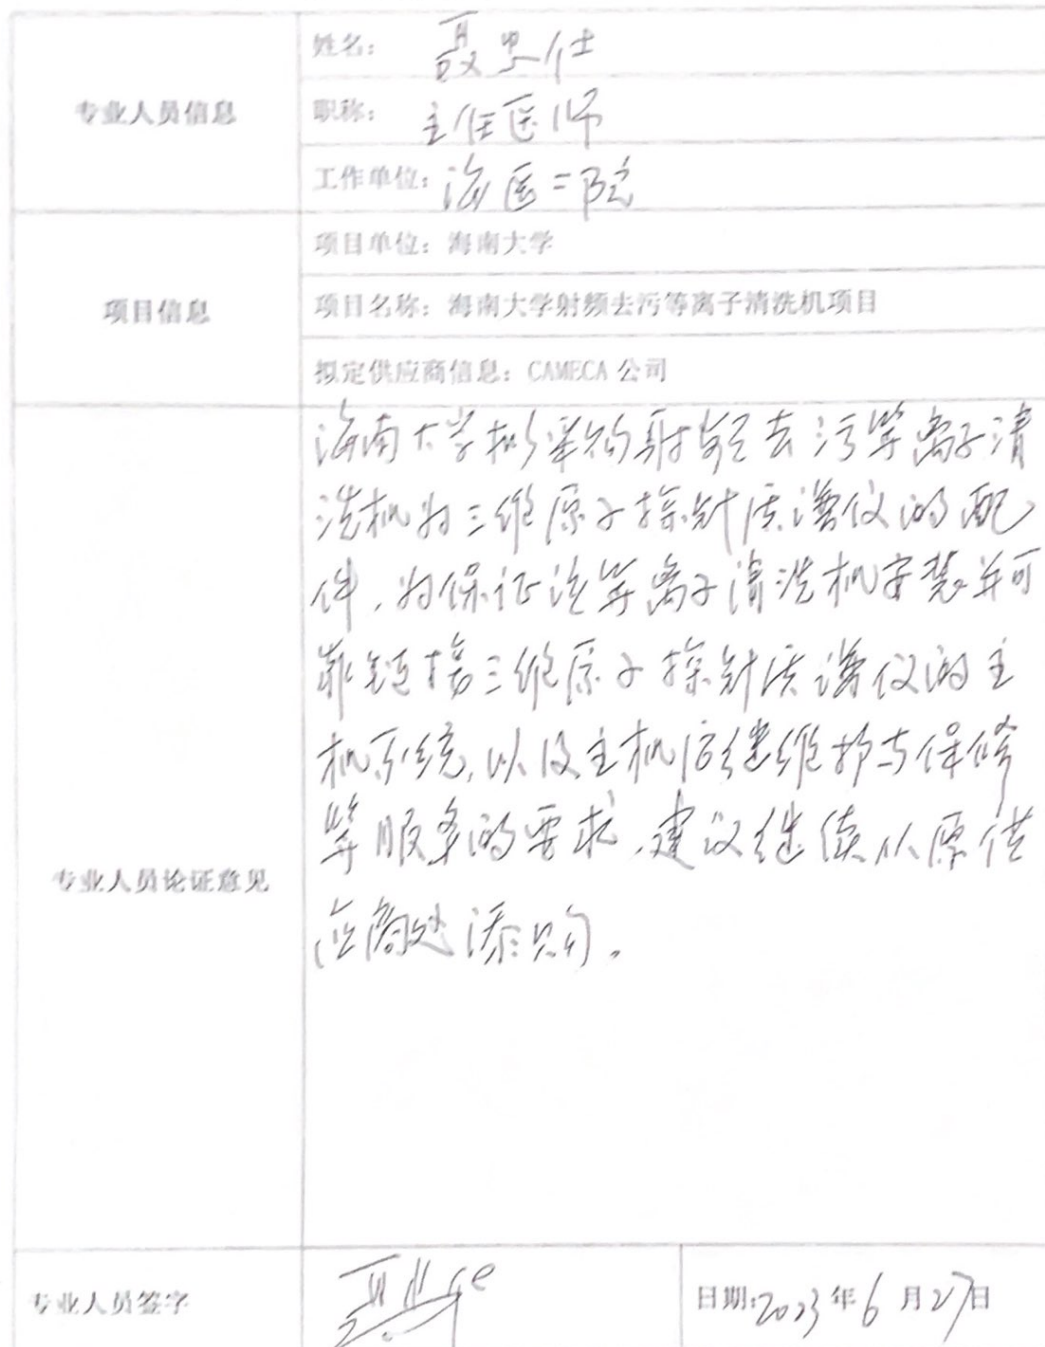 专业人员信息
姓名：聂忠仕
职称：主任医师
工作单位：海医二院
项目信息
项目单位：海南大学
项目名称：海南大学射频去污等离子清洗机项目
拟定供应商信息：CAMECA 公司
专业人员论证意见
海南大学拟采购射频去污等离子清
洗机为三维原子探针质谱仪的配
件，为保证该等离子清洗机安装并可
靠链接三维原子探针质谱仪的主
机系统，以及主机后续维护与保修
等服务的要求，建议继续从原供
应商处添购。
专业人员签字
日期：2023年6月27日